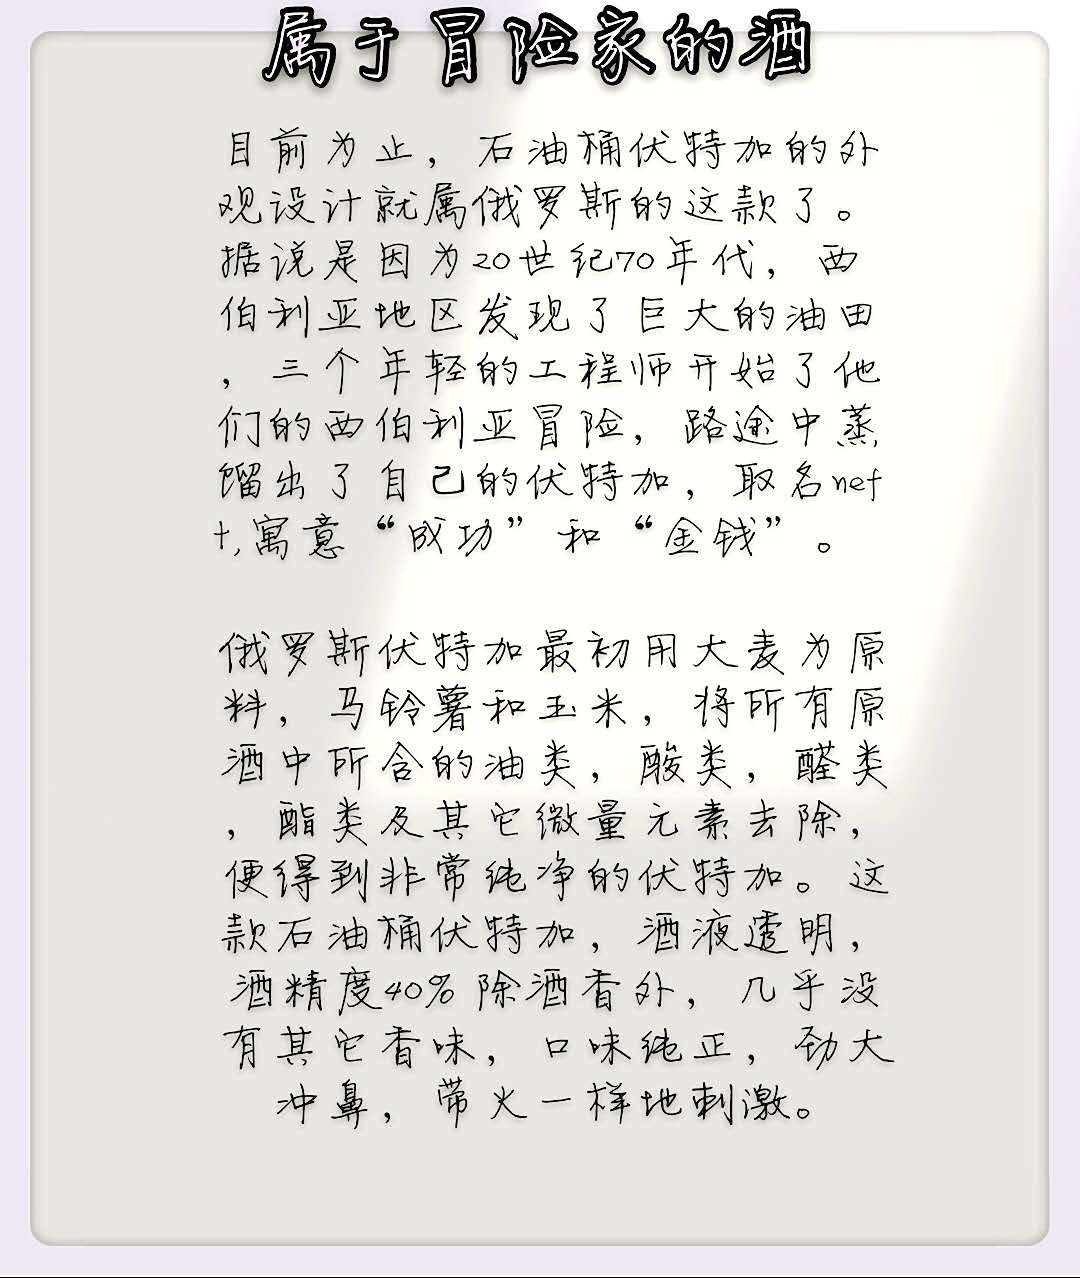 属于冒险家的酒
目前为止，石油桶伏特加的外
观设计就属俄罗斯的这款了。
据说是因为20世纪70年代，西
伯利亚地区发现了巨大的油田
，三个年轻的工程师开始了他
们的西伯利亚冒险，路途中蒸
馏出了自己的伏特加，取名nef
t,寓意“成功”和“金钱”。
俄罗斯伏特加最初用大麦为原
料，马铃薯和玉米，将所有原
酒中所含的油类，酸类，醛类
，酯类及其它微量元素去除，
便得到非常纯净的伏特加。这
款石油桶伏特加，酒液透明，
酒精度40%除酒香外，几乎没
有其它香味，口味纯正，劲大
冲鼻，带火一样地刺激。